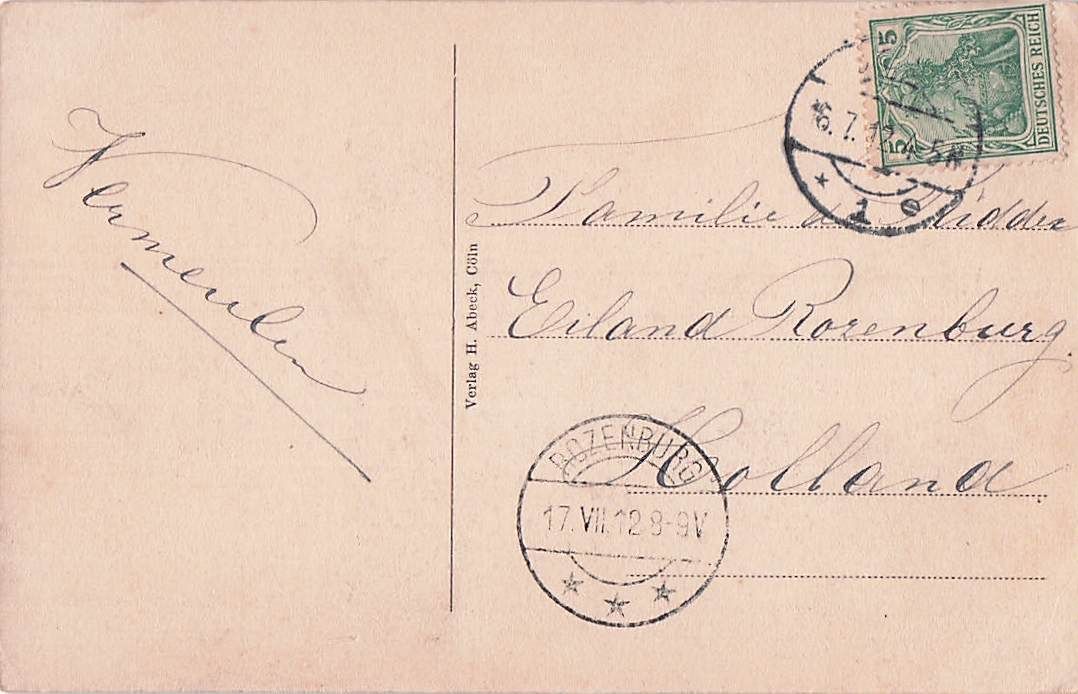 Vermeulen
Verlag H. Abeck, Cöln
5 5
DEUTSCHES REICH
6.7.12. 5N
* 1 e
Familie de Ridder
Eiland Rozenburg
Holland
ROZENBURG
17.VII.12 8-9V